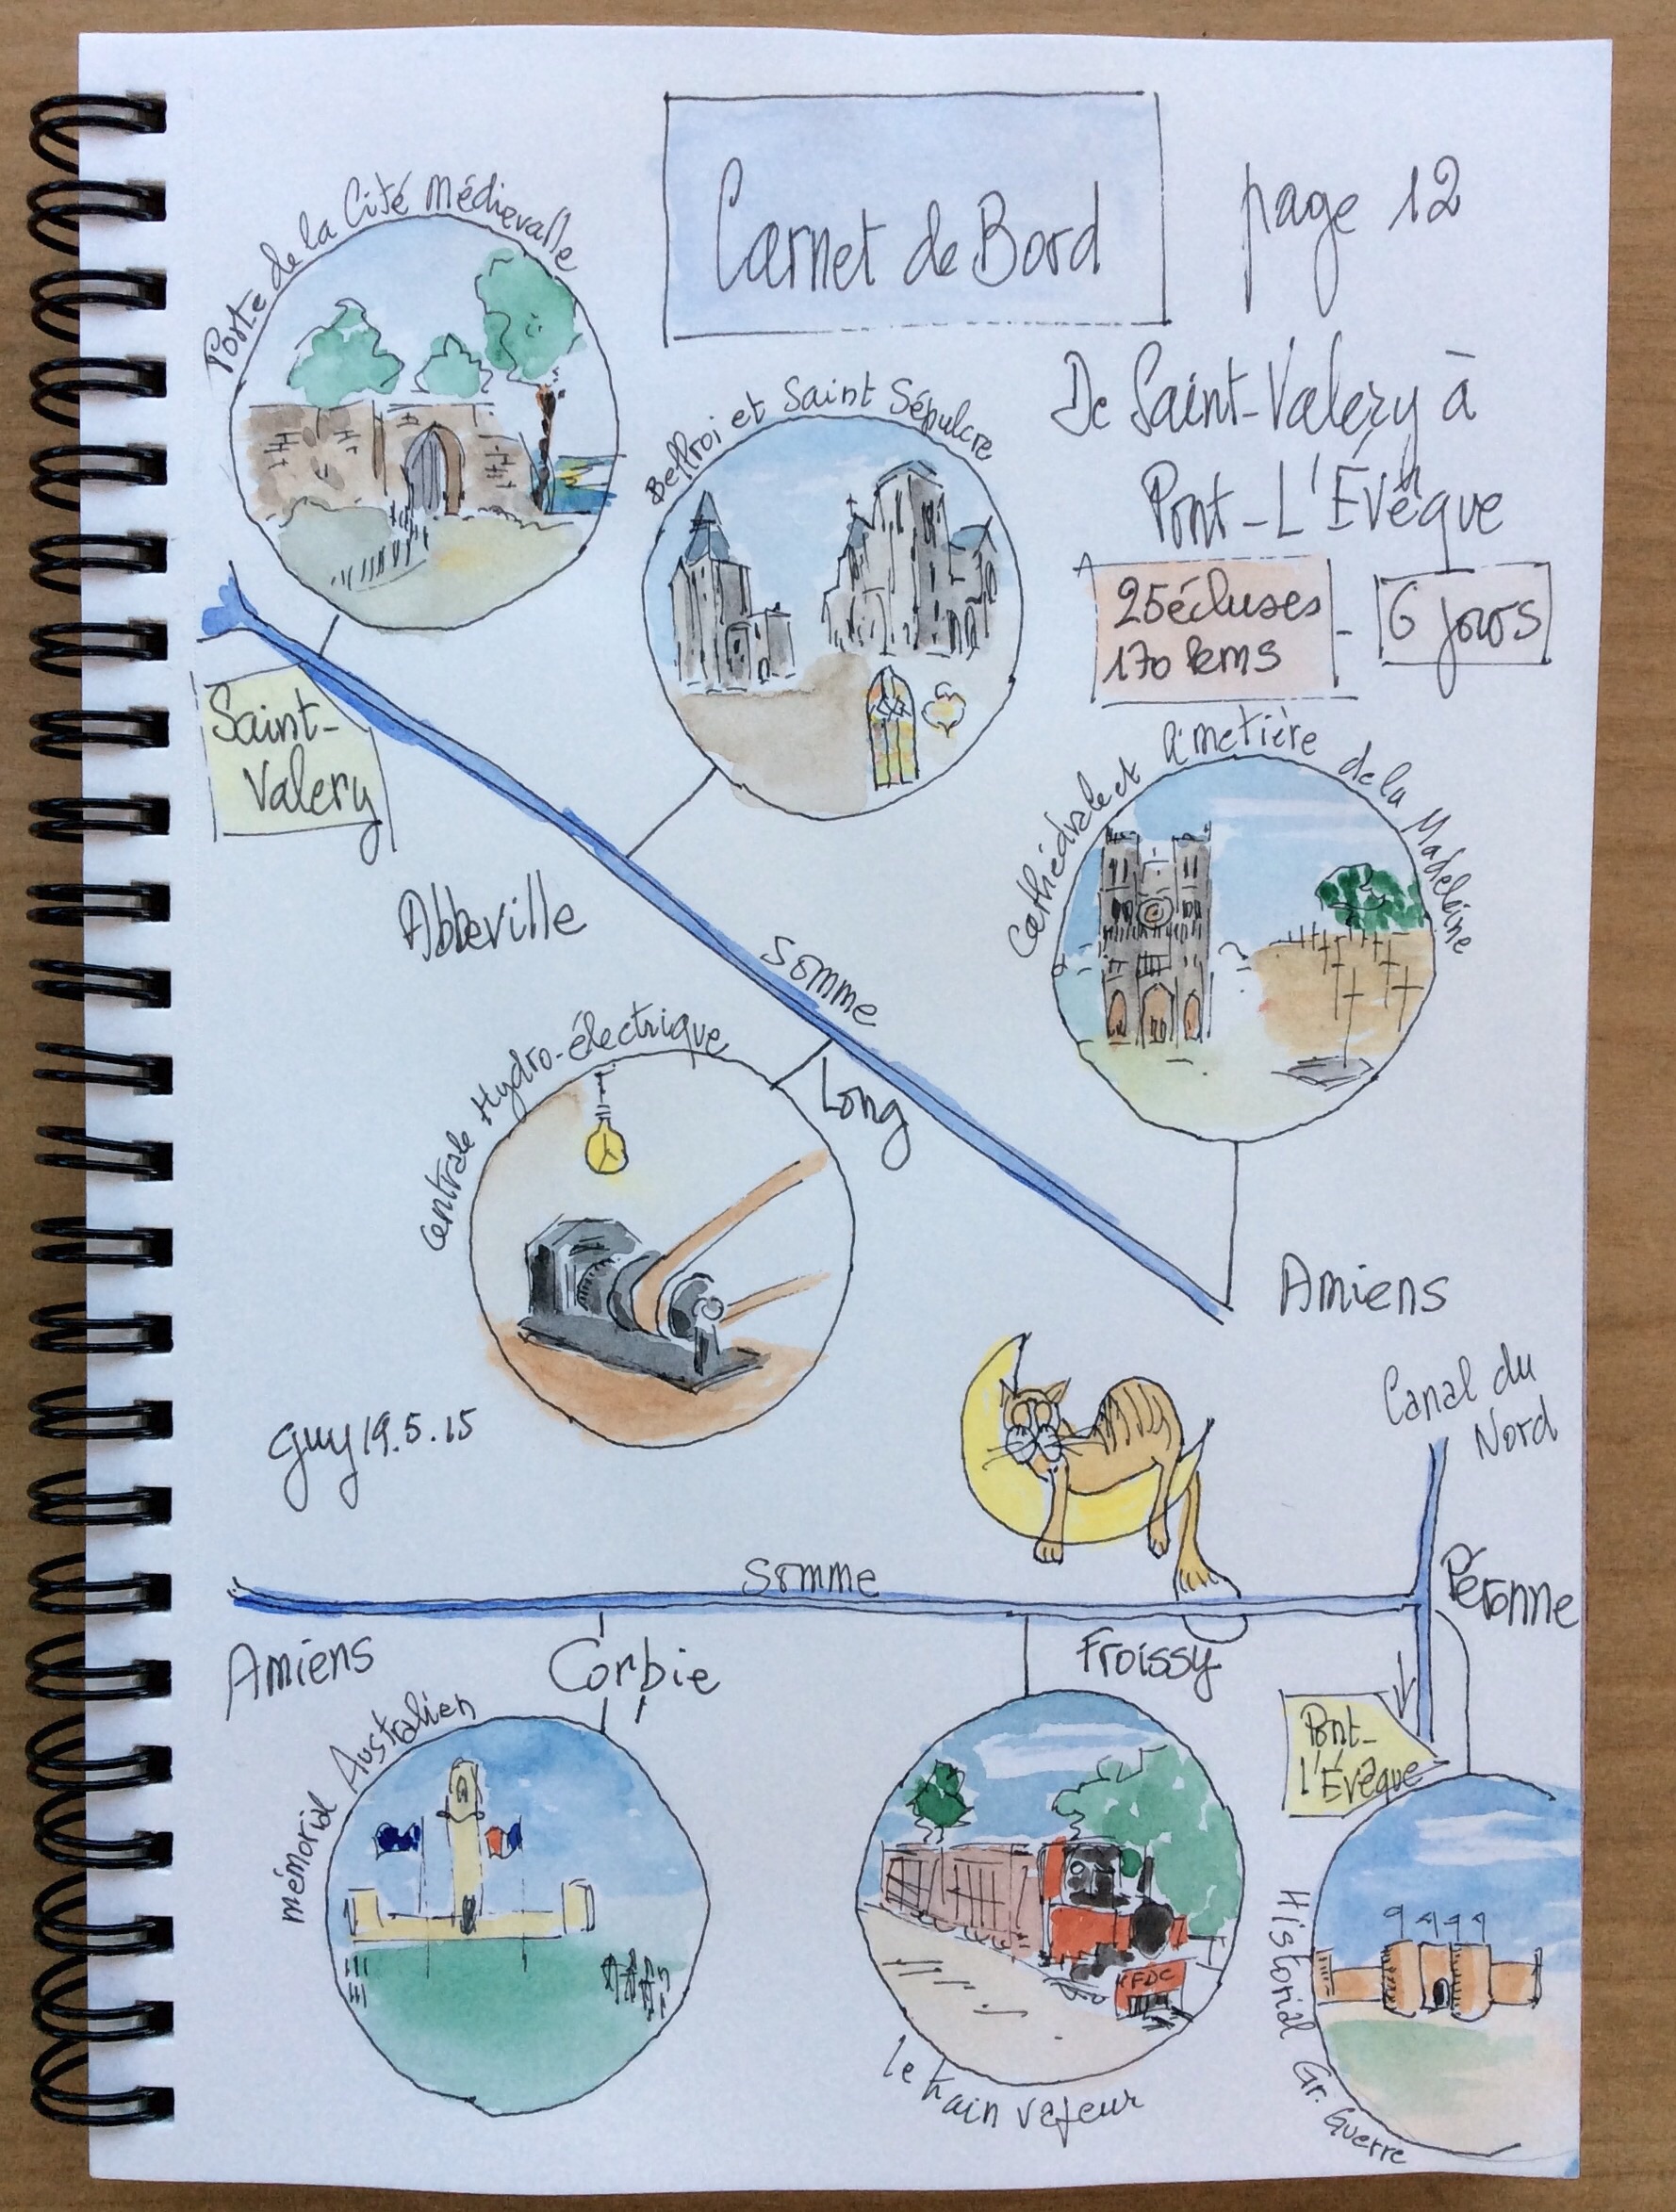 Carnet de Bord
page 12
De Saint-Valery à
Pont-L'Évêque
25 écluses
170 kms
- 6 jours
Porte de la Cité Médievalle
Beffroi et Saint Sépulcre
Saint-
Valery
Cathédrale et Cimetière de la Madeleine
Abbeville
Somme
Centrale Hydro-électrique
Long
Amiens
Canal du
Nord
Guy 19.5.15
Somme
Péronne
Amiens
Corbie
Froissy
Pont-
l'Évêque
mémorial Australien
CFDC
le train vapeur
Historial Gr. Guerre